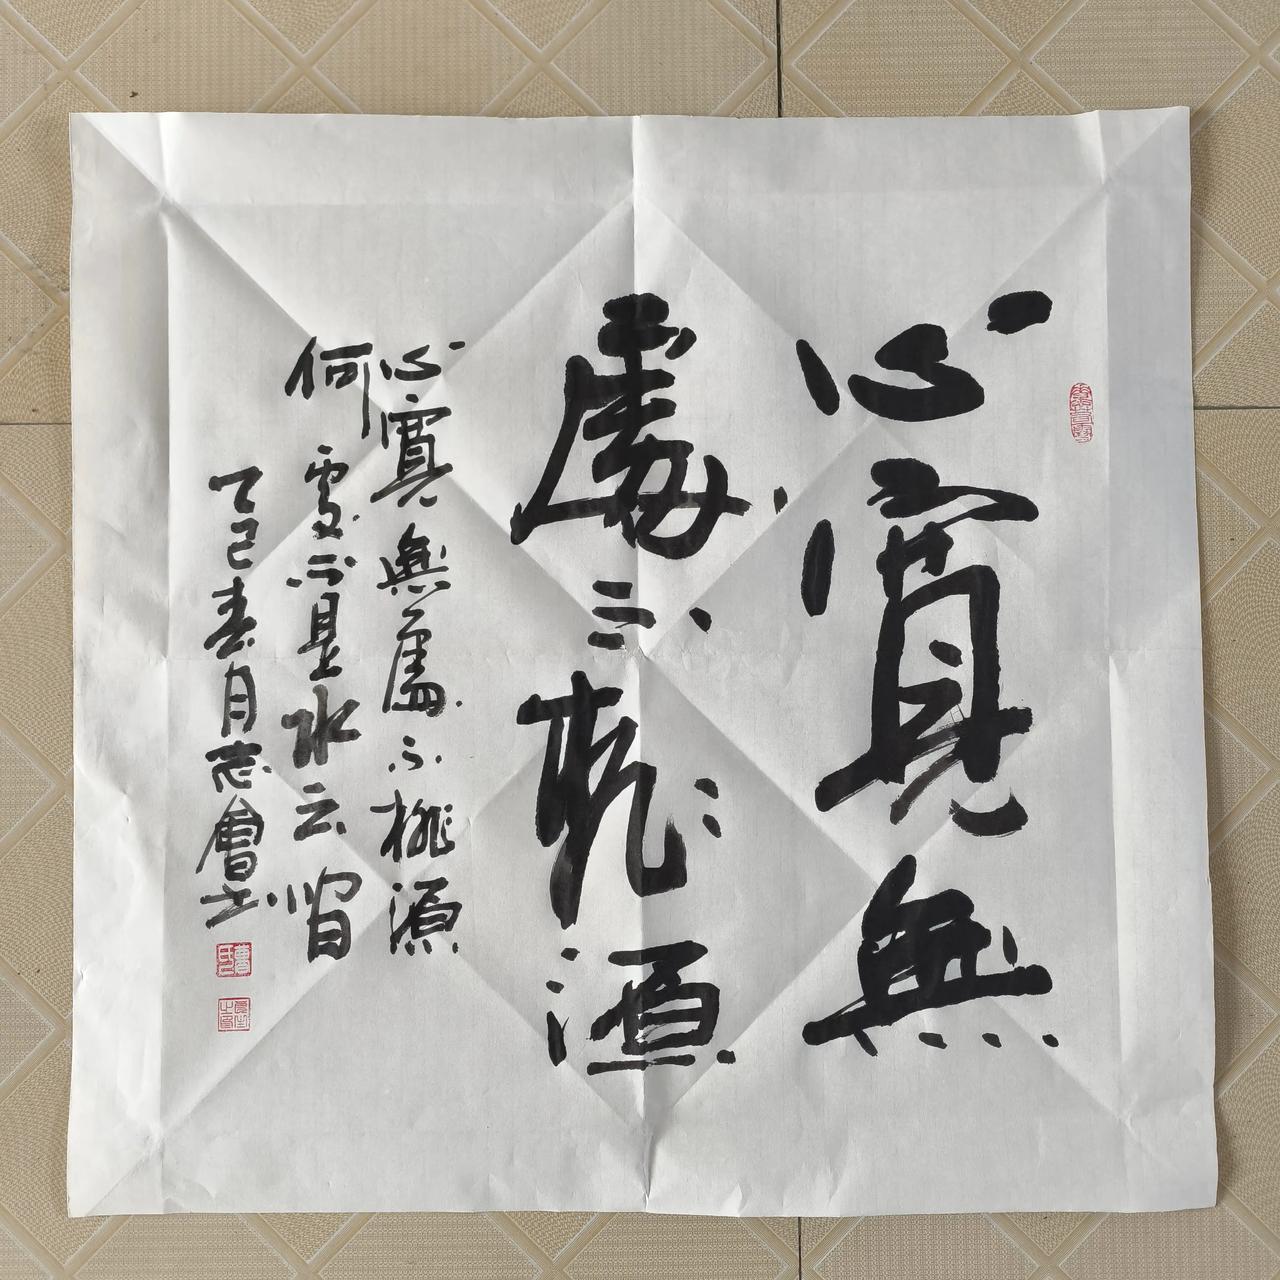 心寬無
處不桃源
心寬無處不桃源
何處不是水云間
乙巳春月志會書